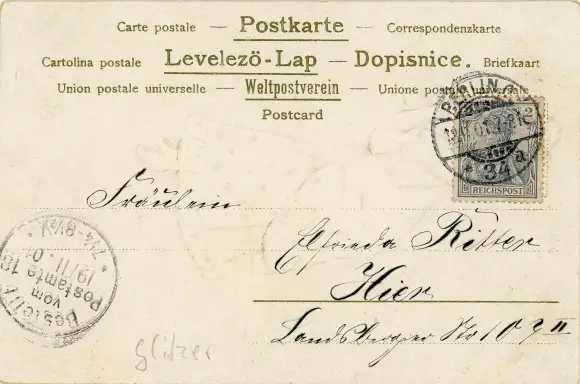 Carte postale — Postkarte — Correspondenzkarte
Cartolina postale Levelezö-Lap — Dopisnice. Briefkaart
Union postale universelle — Weltpostverein — Unione postale universale
Postcard
BERLIN
34 a
2
REICHSPOST
Fräulein
Elfrieda Ritter
Hier
Landsberger Str 109 II
Bestellt
vom
Postamte 18
19/11.01
7¼-8½V.
Glitzer